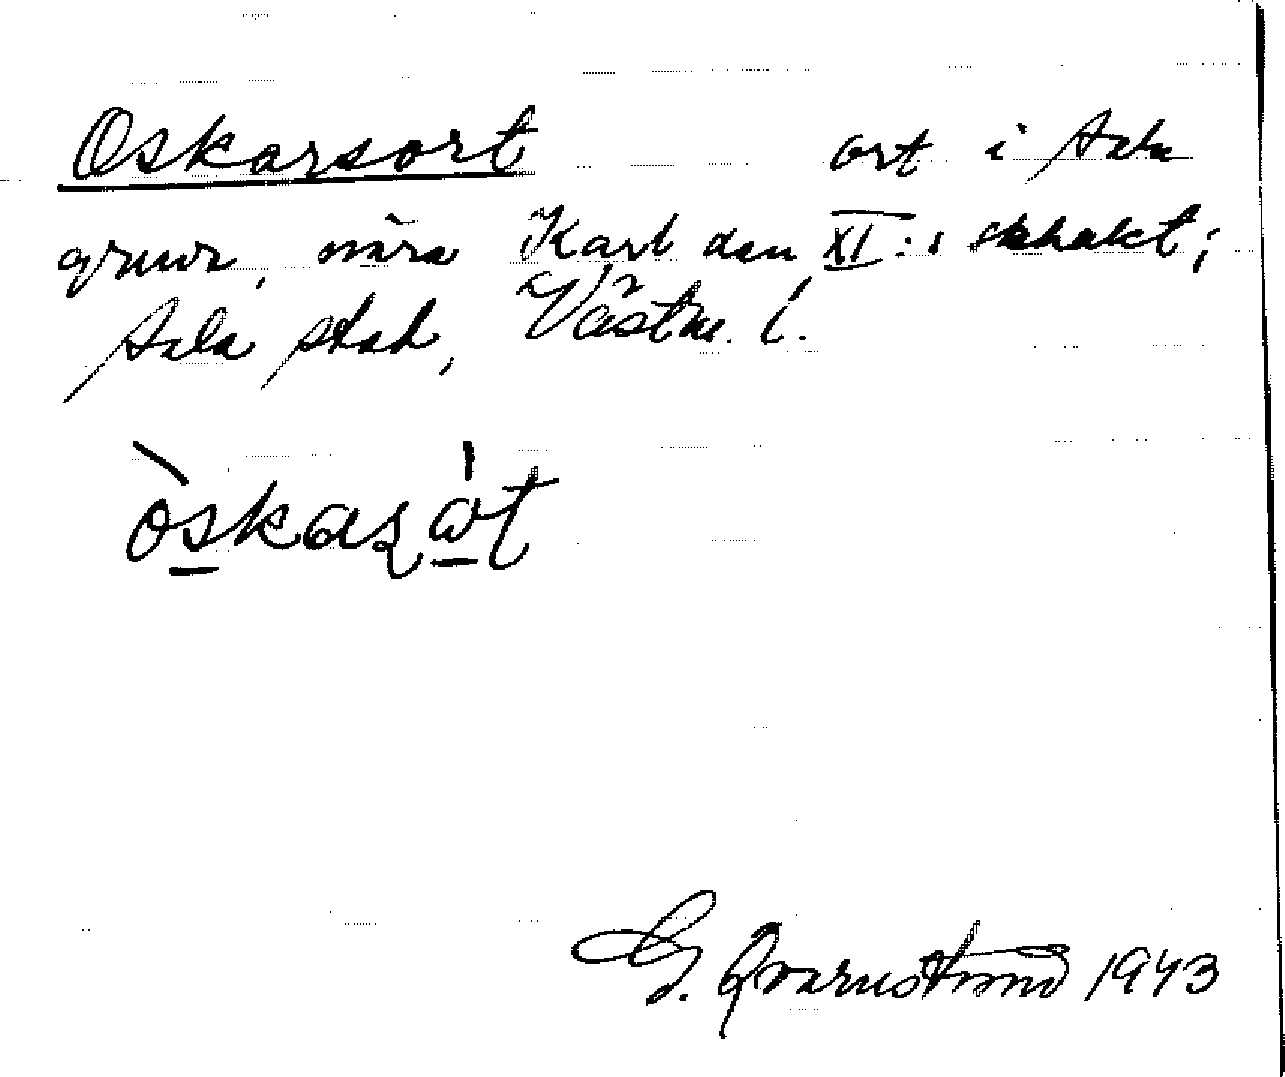 Oskarsort ort i Sala
gruva, nära Karl den XI:s schakt;
Sala stad, Västm. l.
òskaʂát
G. Qvarnström 1943